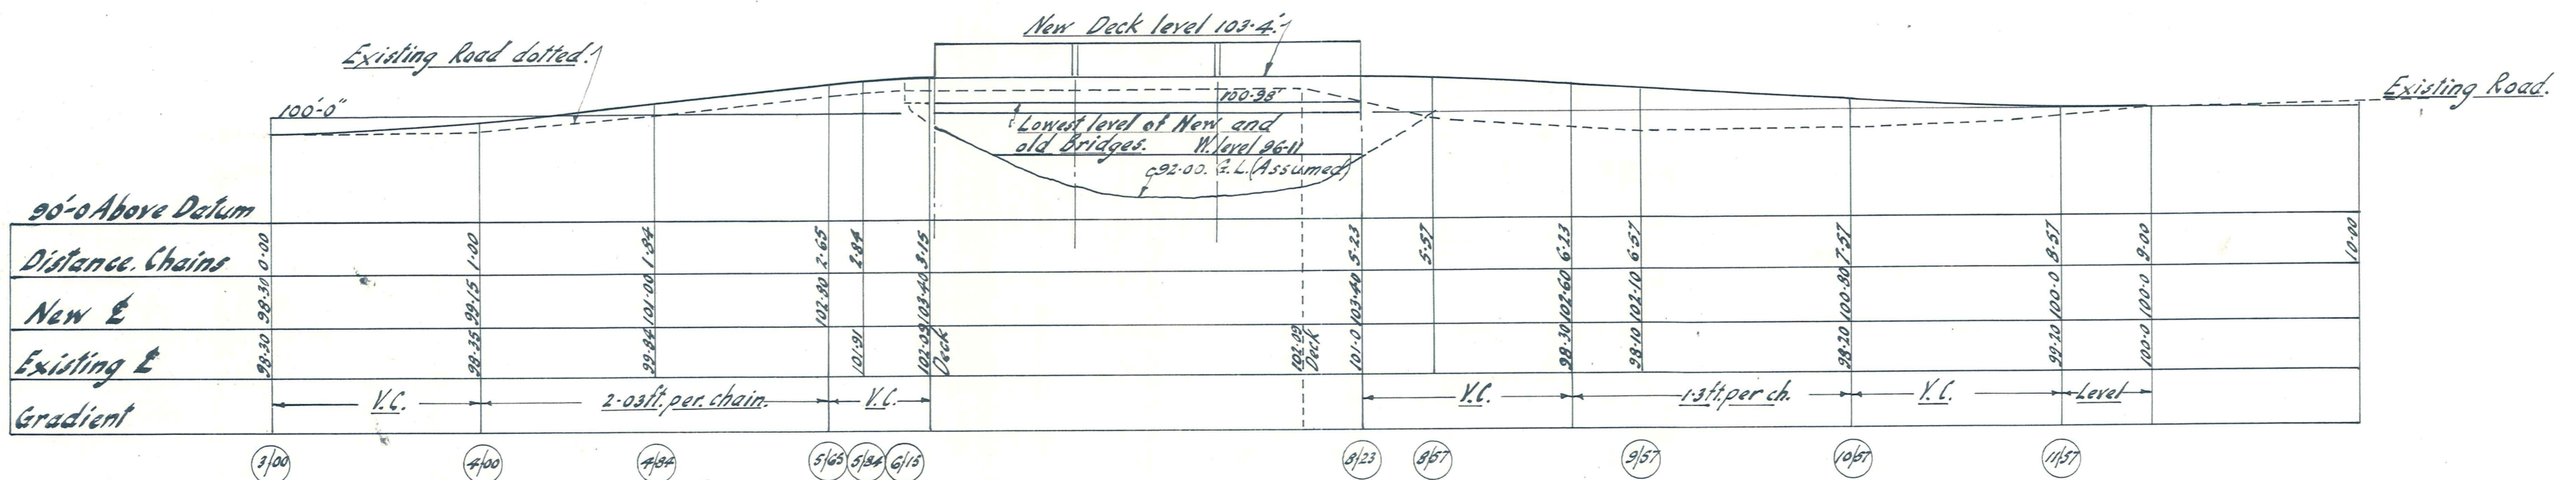 New Deck level 103·4'
Existing Road dotted.
Existing Road.
100'-0"
100·98'
Lowest level of New and
old Bridges.
W. level 96·11
92·00. G.L. (Assumed)
90'-0 Above Datum
Distance. Chains 0·00 1·00 1·84 2·65 2·84 3·15 5·23 5·57 6·23 6·57 7·57 8·57 9·00 10·00
New ℄ 98·30 99·15 101·00 102·90 103·40 103·40 102·60 102·10 100·80 100·0 100·0
Existing ℄ 98·30 98·35 99·84 101·91 102·09 Deck 102·09 Deck 101·0 98·30 98·10 98·20 99·20 100·0
Gradient V.C. 2·03ft. per. chain. V.C. V.C. 1·3ft. per ch. V.C. Level
3/00 4/00 4/84 5/65 5/84 6/15 8/23 8/57 9/57 10/57 11/57